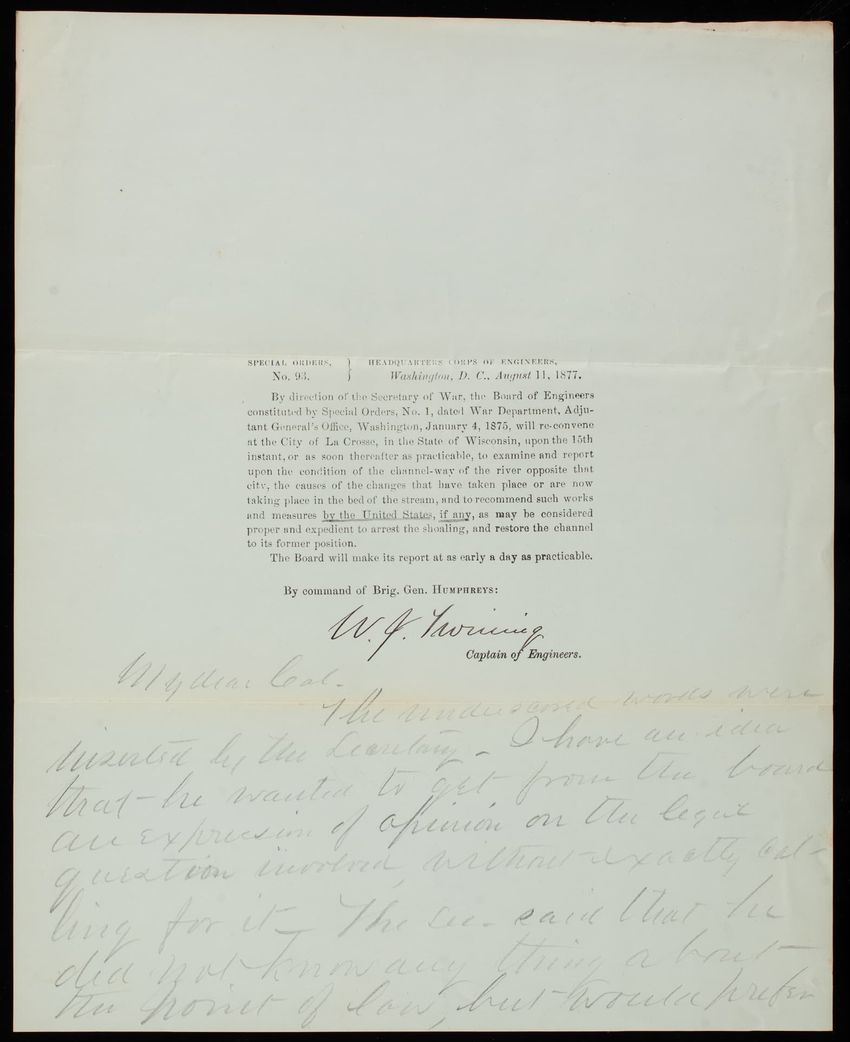 SPECIAL ORDERS, } HEADQUARTERS CORPS OF ENGINEERS,
No. 93. } Washington, D. C., August 11, 1877.
By direction of the Secretary of War, the Board of Engineers
constituted by Special Orders, No. 1, dated War Department, Adju-
tant General's Office, Washington, January 4, 1875, will re-convene
at the City of La Crosse, in the State of Wisconsin, upon the 15th
instant, or as soon thereafter as practicable, to examine and report
upon the condition of the channel-way of the river opposite that
city, the causes of the changes that have taken place or are now
taking place in the bed of the stream, and to recommend such works
and measures by the United States, if any, as may be considered
proper and expedient to arrest the shoaling, and restore the channel
to its former position.
The Board will make its report at as early a day as practicable.
By command of Brig. Gen. HUMPHREYS:
W. J. Twining
Captain of Engineers.
My dear Col.
The underscored words were
inserted by the Secretary - I have an idea
that he wanted to get from the board
an expression of opinion on the legal
question involved, without exactly cal-
ling for it - The Sec. said that he
did not know any thing about
the point of law, but would prefer